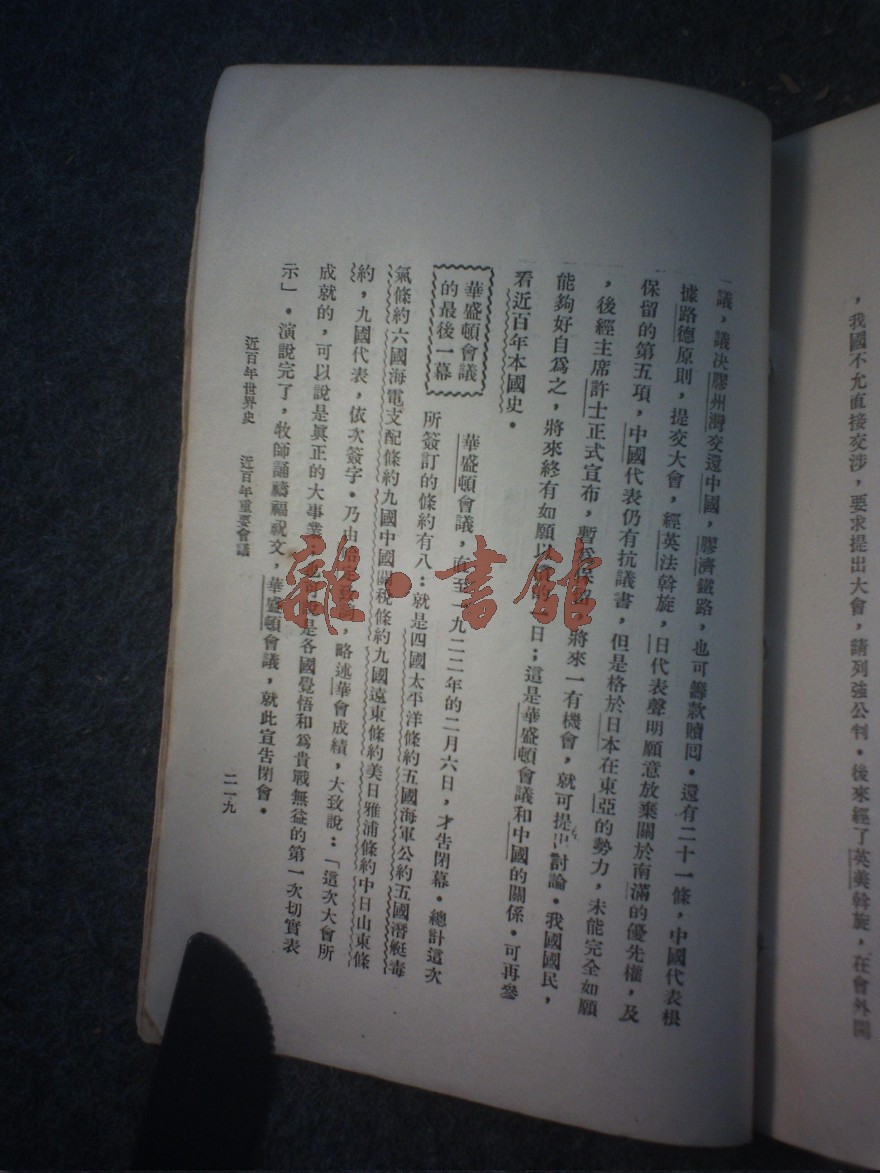 ，我國不允直接交涉，要求提出大會，請列強公判。後來經了英美斡旋，在會外開
議，議決膠州灣交還中國，膠濟鐵路，也可籌款贖回。還有二十一條，中國代表根
據路德原則，提交大會，經英法斡旋，日代表聲明願意放棄關於南滿的優先權，及
保留的第五項，中國代表仍有抗議書，但是格於日本在東亞的勢力，未能完全如願
，後經主席許士正式宣布，暫為保留，將來一有機會，就可提出討論。我國國民，
能夠好自爲之，將來終有如願以償的一日；這是華盛頓會議和中國的關係。可再參
看近百年本國史。
華盛頓會議
的最後一幕
華盛頓會議，直至一九二二年的二月六日，才告閉幕。總計這次
所簽訂的條約有八：就是四國太平洋條約五國海軍公約五國潛艇毒
氣條約六國海電支配條約九國中國關税條約九國遠東條約美日雅浦條約中日山東條
約，九國代表，依次簽字。乃由，略述華會成績，大致說：「這次大會所
成就的，可以說是眞正的大事業，也可說是各國覺悟和爲貴戰無益的第一次切實表
示」。演說完了，牧師誦禱福祝文，華盛頓會議，就此宣告閉會。
近百年世界史　近百年重要會議
二一九
雜·書館